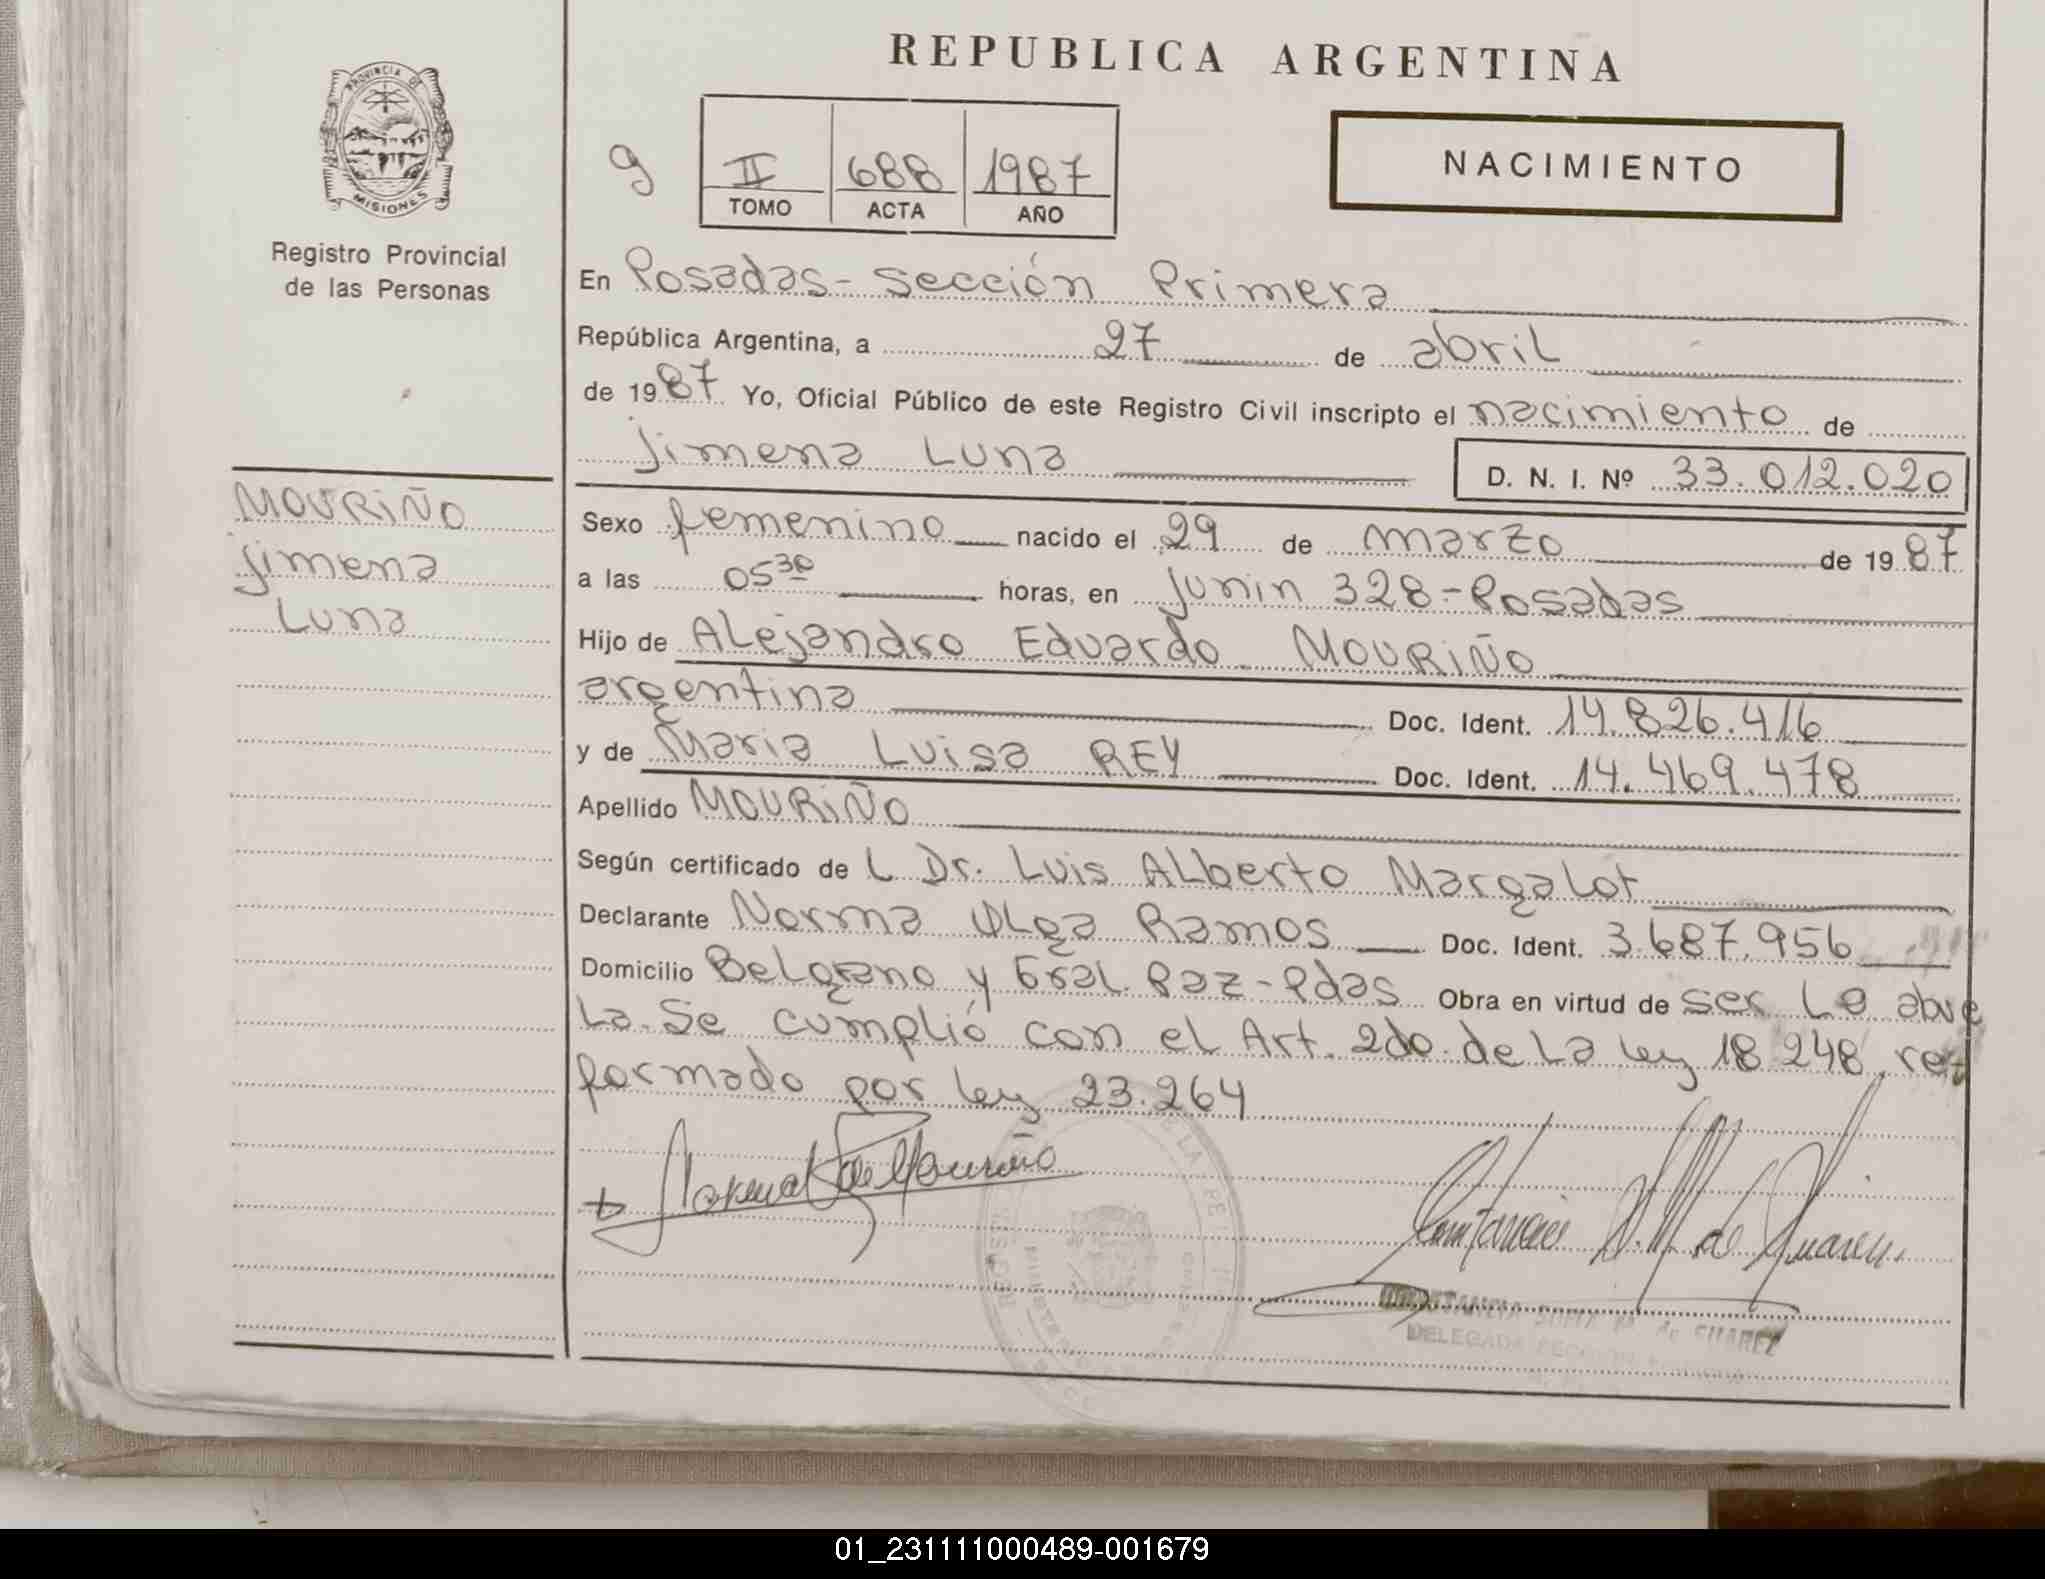 REPUBLICA ARGENTINA
PROVINCIA DE
MISIONES
Registro Provincial
de las Personas
9
II 688 1987
TOMO ACTA AÑO
NACIMIENTO
En Posadas - Sección Primera
República Argentina, a 27 de abril
de 1987 Yo, Oficial Público de este Registro Civil inscripto el nacimiento de
Jimena Luna D. N. I. Nº 33.012.020
MOURIÑO
Jimena
Luna
Sexo femenino nacido el 29 de marzo de 1987
a las 05 30 horas, en Junin 328 - Posadas
Hijo de Alejandro Eduardo MOURIÑO
argentina Doc. Ident. 14.826.416
y de Maria Luisa REY Doc. Ident. 14.469.478
Apellido MOURIÑO
Según certificado de L Dr. Luis Alberto Margalot
Declarante Norma Olga Ramos Doc. Ident. 3.687.956
Domicilio Belgrano y Gral. Paz - Pdas Obra en virtud de ser la abue
la. Se cumplió con el Art. 2do. de la ley 18.248, re-
formado por ley 23.264
de Mouriño
de Suarez
CONSTANCIA SOFIA M. de SUAREZ
DELEGADA SECCION
01_231111000489-001679